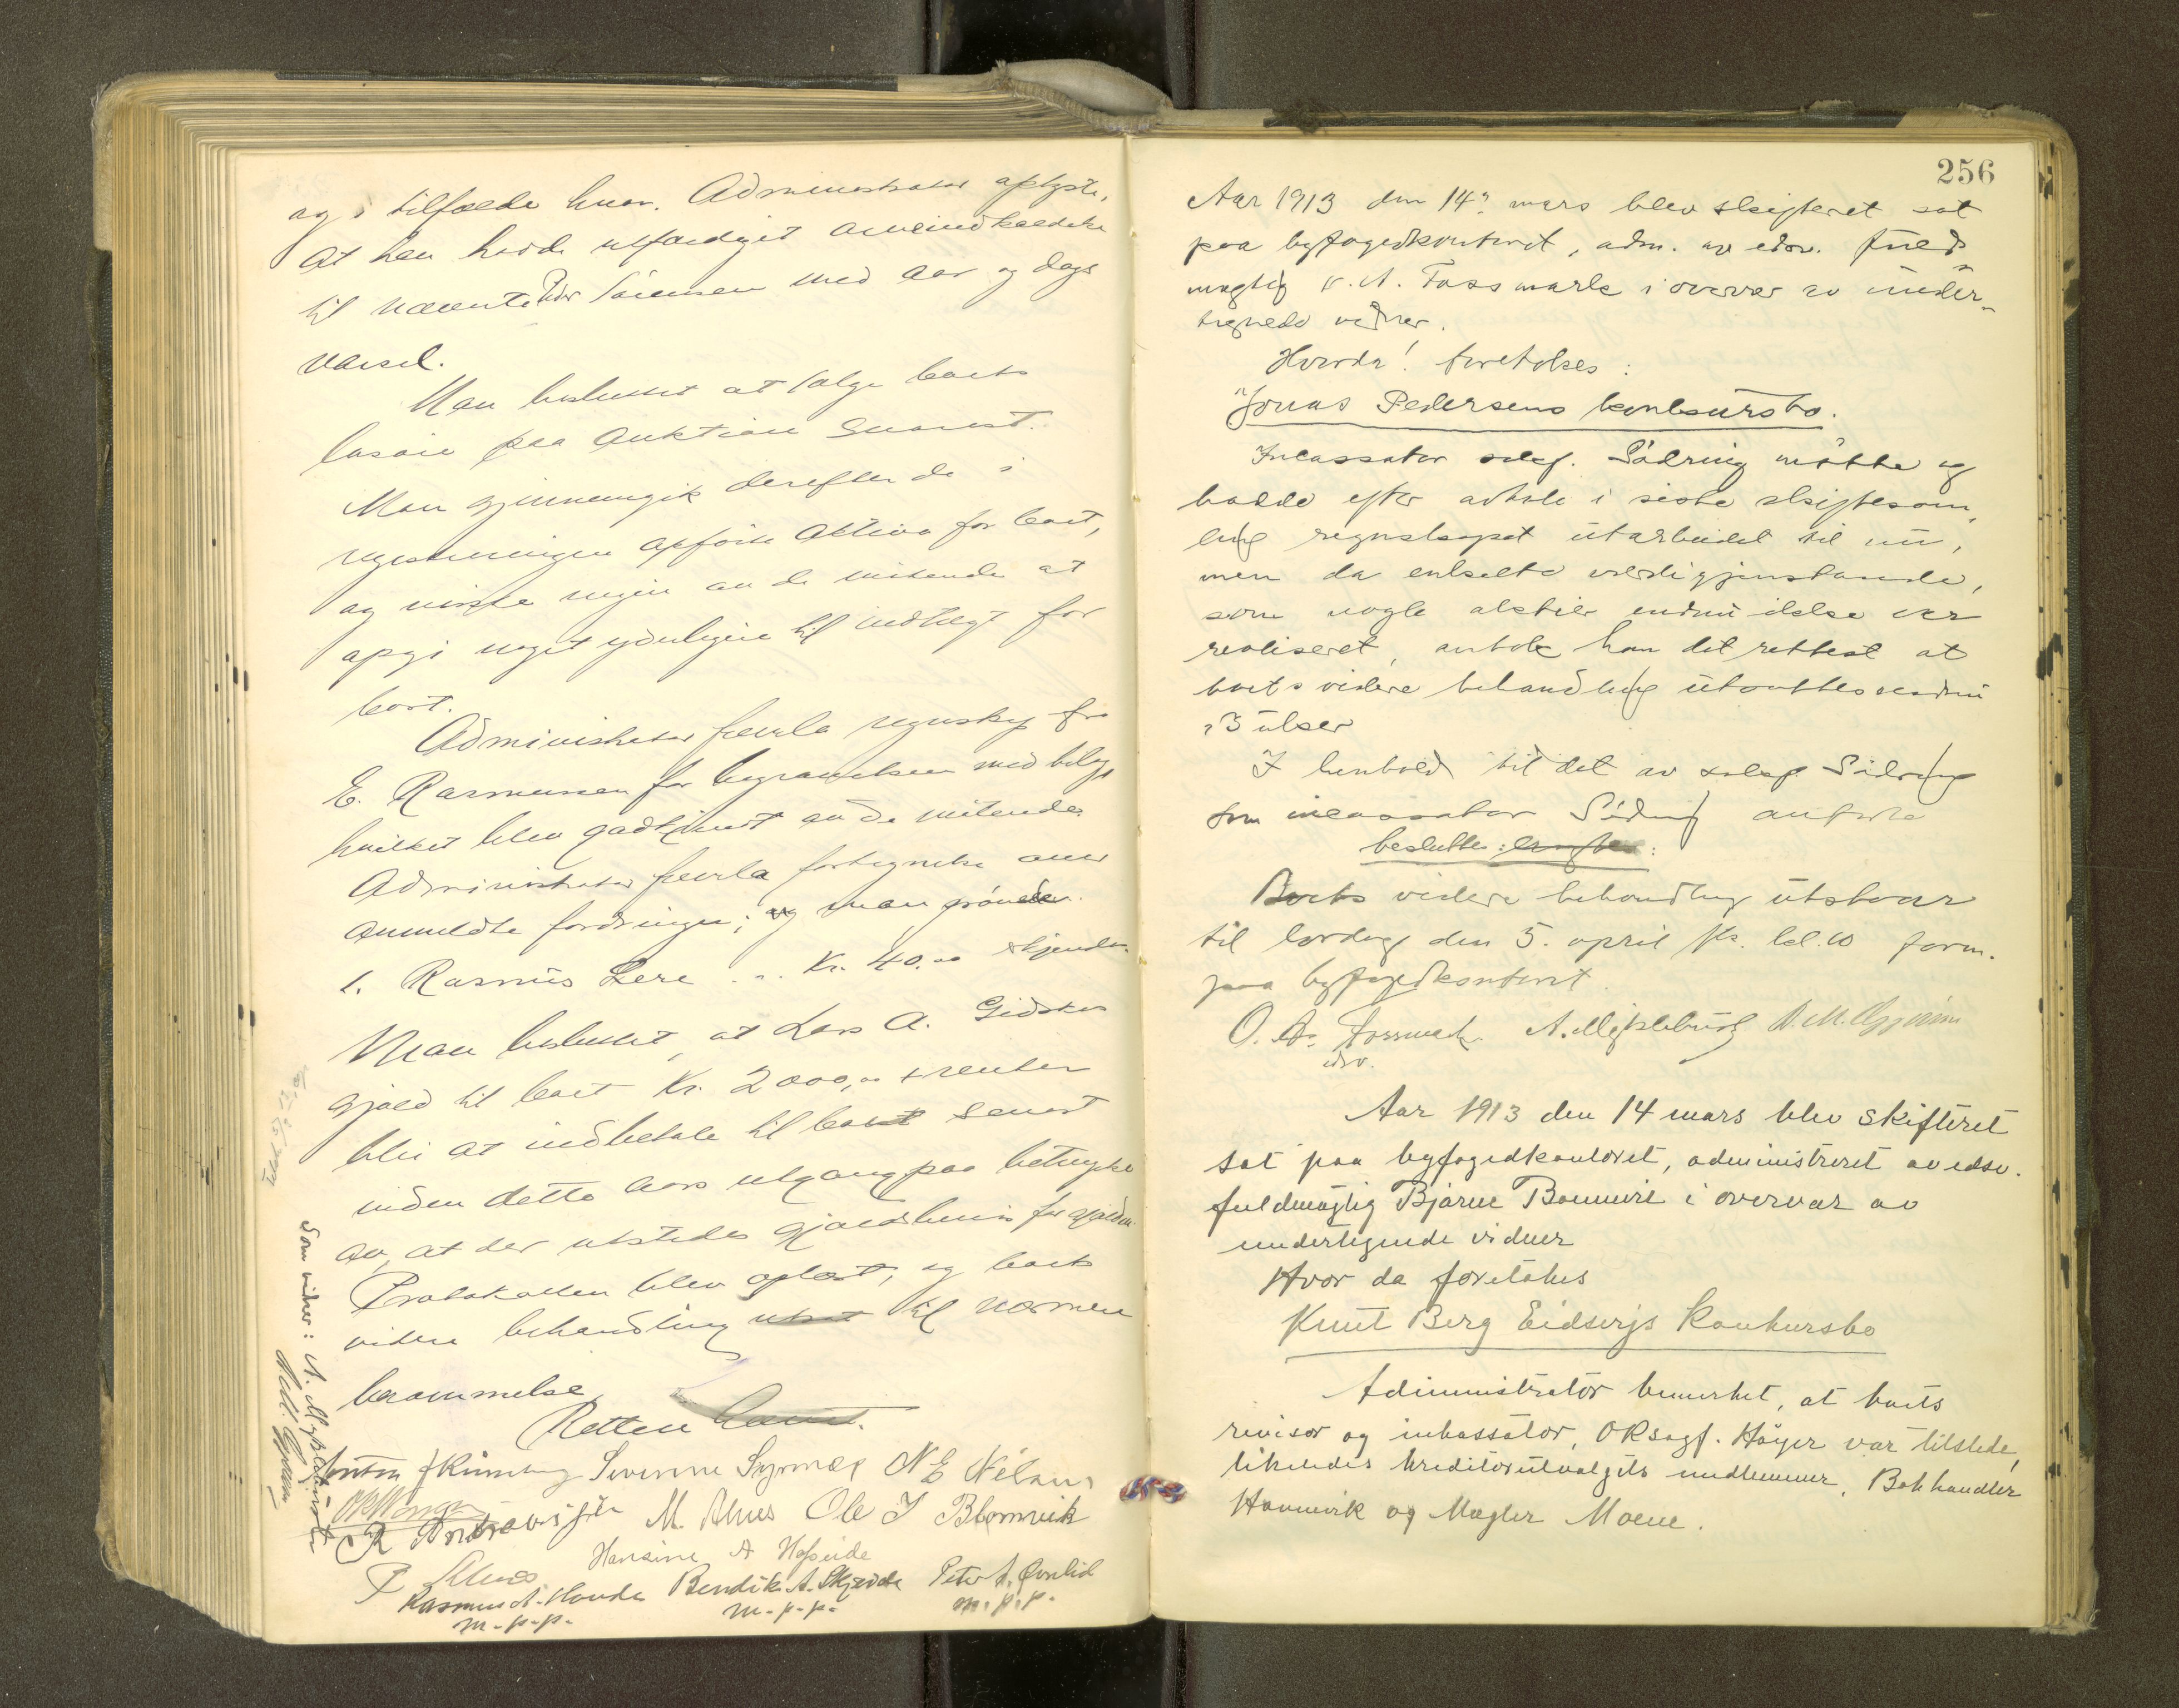 og i tilfælde hvor. Administrator oplyste,
at han havde utfærdiget arveindkaldelse
til nævnte Peder Sørensen med aar og dags
varsel.
Man besluttet at sælge boets
løsøre paa auktion snarest.
Man gjennemgik derefter de i
registreringen opførte aktiva for boet,
og visste ingen av de møtende at
opgi noget yderligere til indtægt for
boet.
Administrator fremla regnskap fra
E. Rasmussen for begravelsen med bilag
hvilket blev godkjendt av de møtende.
Administrator fremla fortegnelse over
anmeldte fordringer; og man prøvede
1. Rasmus Lere .. Kr. 40.00 erkjendes.
Man besluttet, at Lars A. Gidskes
gjæld til boet Kr. 2000,00 + renter
blir at indbetale til boet senest
inden dette aars utgang paa betingelse
av, at der utstedes gjældsbevis for gjælden.
Protokollen blev oplæst, og boets
videre behandling utsat til nærmere
berammelse.
Retten hævet.
Severine Synnes N E
M. Alnes Ole J Blomvik
Hansine A Hofseide
P Alnes
Rasmus A. Bendik A. Peter A.
m.p.p. m.p.p. m.p.p.
Som vidner: A. Myklebust
256
Aar 1913 den 14. mars blev skifteret sat
paa byfogedkontoret, adm. av edsv. fuld-
mægtig O. A. Fossmark i overvær av under-
tegnede vidner.
Hvorda! foretokes:
Jonas Pedersens konkursbo.
Incassator sakf. Södring møtte og
hadde efter avtale i siste skiftesam-
ling regnskapet utarbeidet til nu,
men da enkelte verdigjenstande,
som nogle aktier endnu ikke var
realiseret, antok han det rettest at
boets videre behandling utsattes endnu
3 uker
I henhold til det av sakf. Södring
som incassator Södring anførte
besluttes:
Boets videre behandling utstaar
til lørdag den 5. april kl. 10 form.
paa byfogedkontoret.
O. A. Fossmark. A. Myklebust
edsv.
Aar 1913 den 14 mars blev skifteret
sat paa byfogedkontoret, administreret av edsv.
fuldmægtig Bjarne Bonnevie i overvær av
undertegnede vidner
Hvor da foretokes
Knut Berg Eidsvigs Konkursbo
Administrator bemerket, at boets
revisor og inkassator, ORsagf. Høyer var tilstede,
likeledes kreditorutvalgets medlemmer, Bokhandler
Hannevik og Mægler Moene.